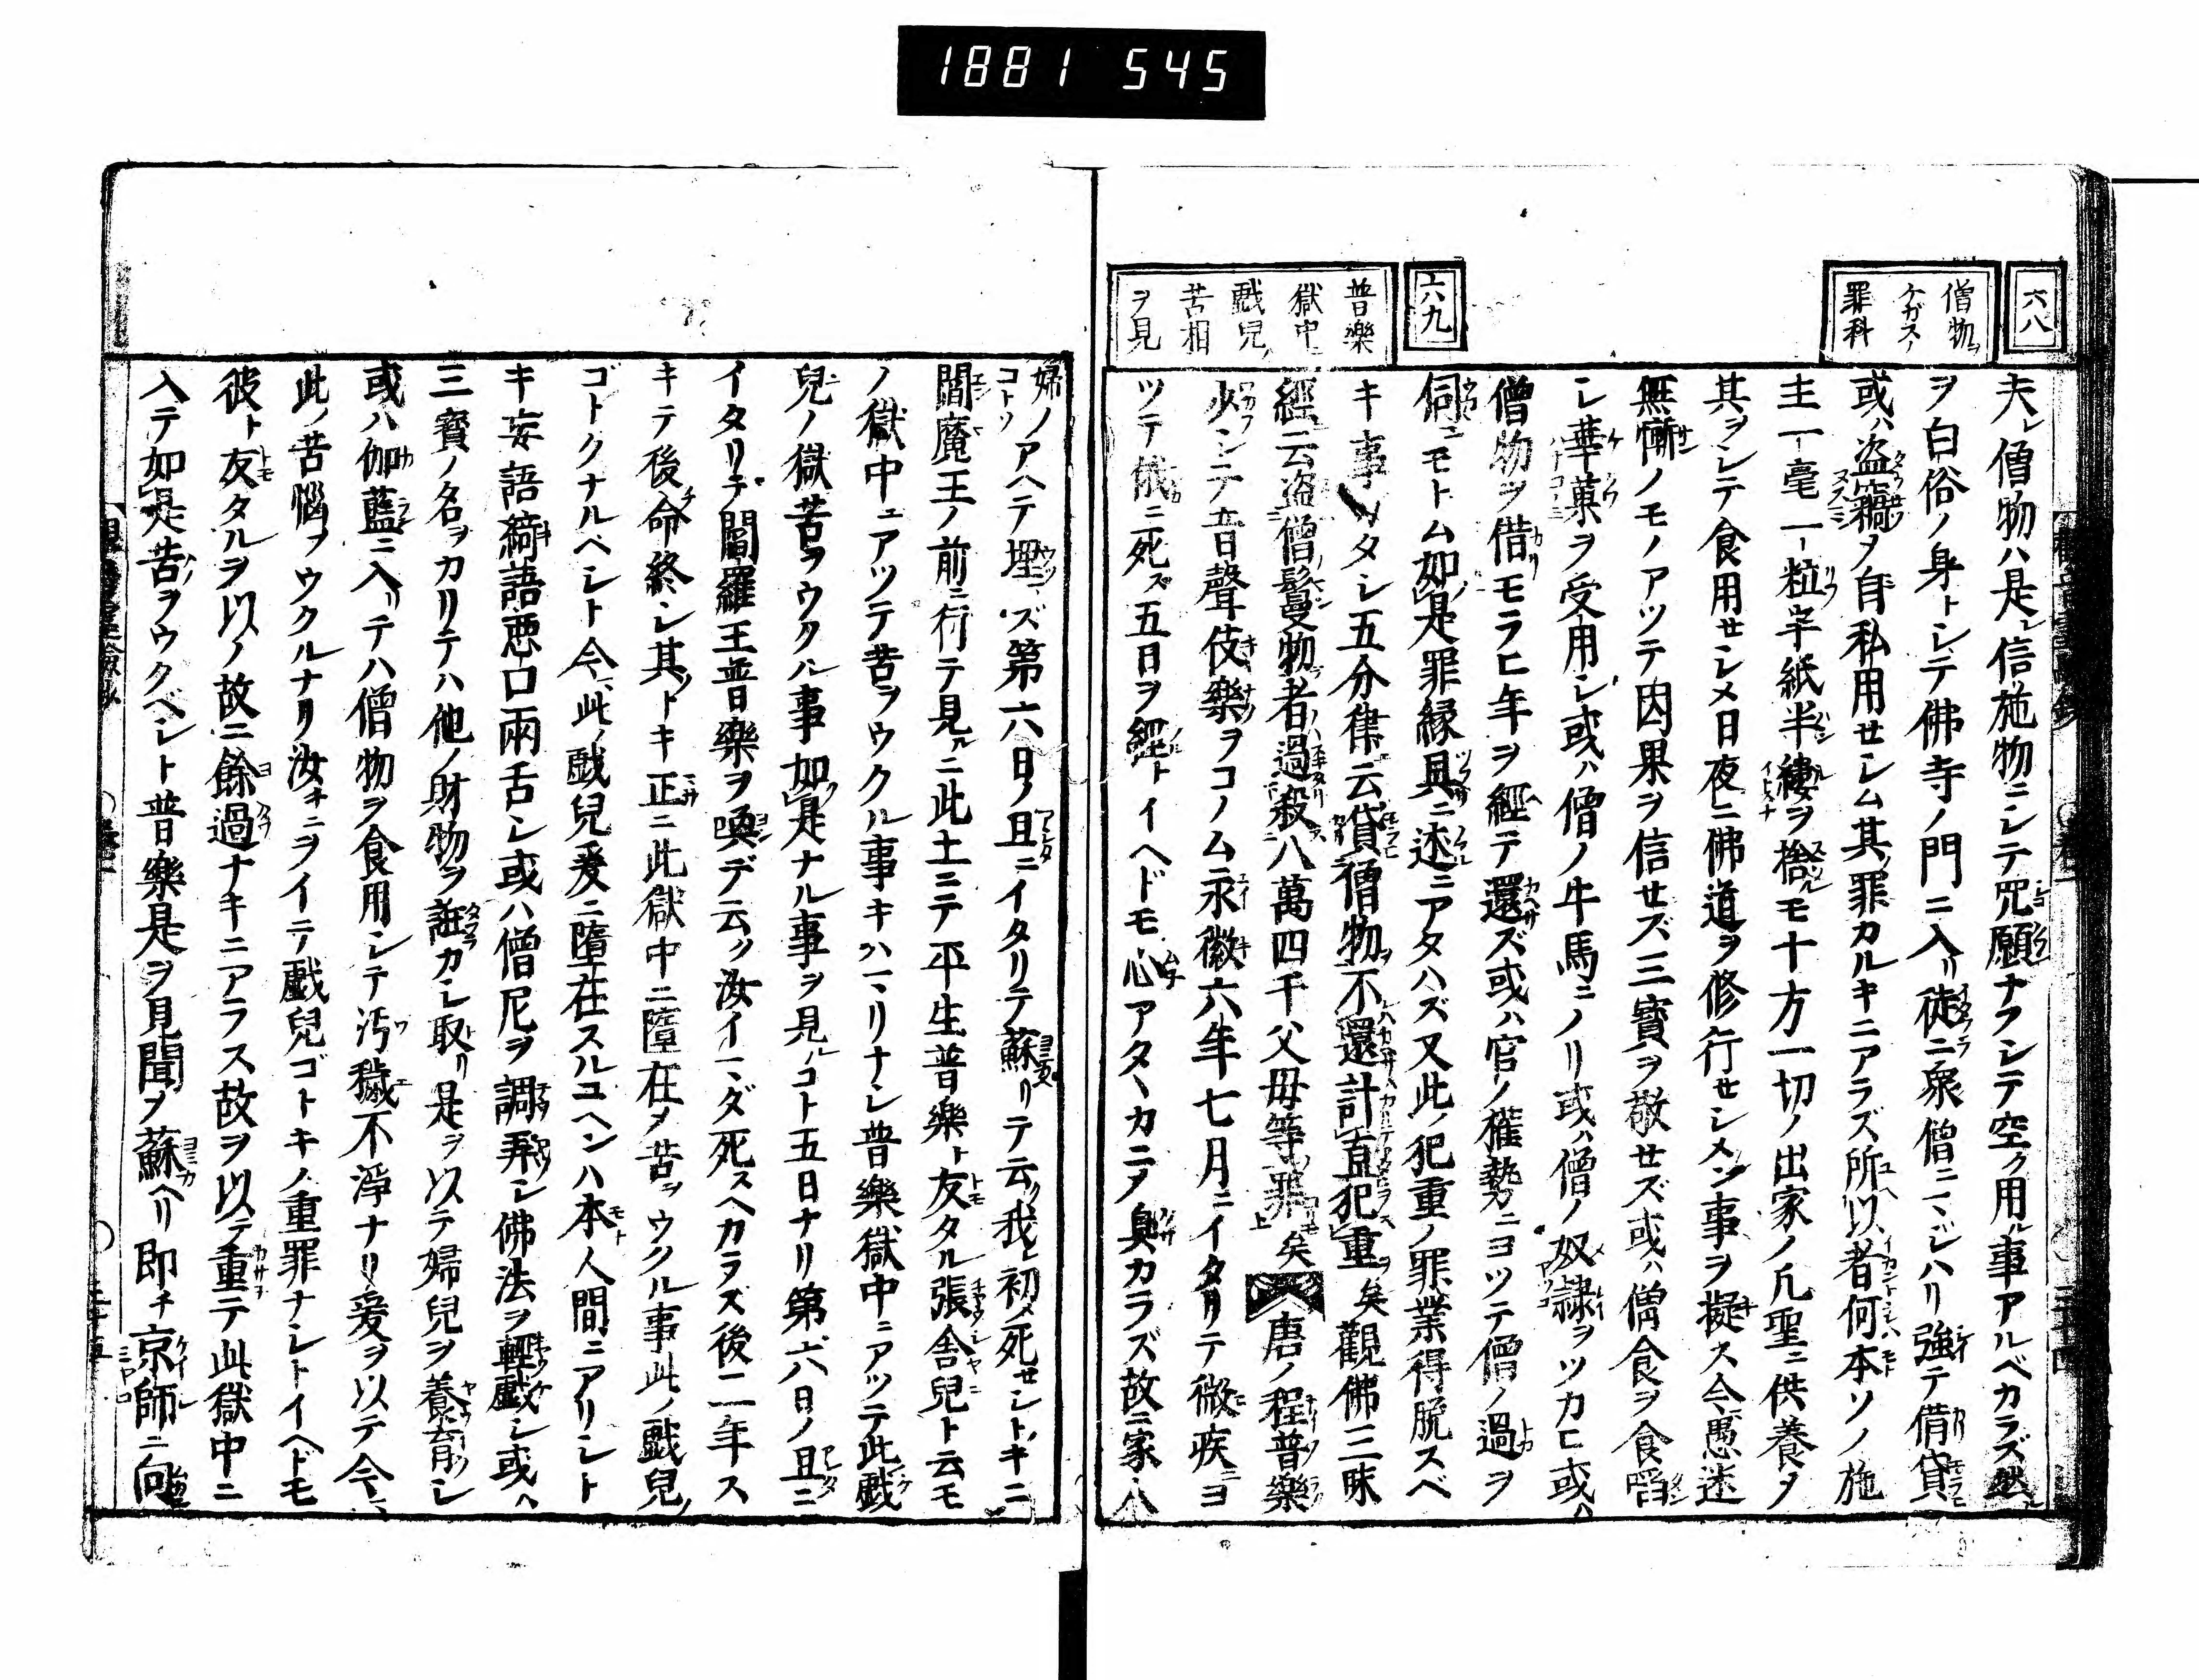 1881 545
六八
僧物ヲ
ケガスノ
罪科
夫レ僧物ハ是レ信施物ニシテ咒願ナクシテ空ク用ル事アルベカラズ然ルヲ
ヲ白俗ノ身トシテ佛寺ノ門ニ入リ徒ニ衆僧ニマジハリ強テ借貸
或ハ盗竊ヲ自私用セシム其ノ罪カルキニアラズ所以者何本ソノ施
主一毫一粒字紙半縷ヲ捨ルモ十方一切ノ出家ノ凡聖ニ供養ヲ
其ヲシテ食用セシメ日夜ニ佛道ヲ修行セシメン事ヲ擬ス今愚迷
無慚ノモノアツテ因果ヲ信セズ三寶ヲ敬セズ或ハ僧食ヲ食㗖
シ華菓ヲ受用シ或ハ僧ノ牛馬ニノリ或ハ僧ノ奴隷ヲツカヒ或ハ
僧物ヲ借モラヒ年ヲ經テ還ズ或ハ官ノ權勢ニヨツテ僧ノ過ヲ
伺ヒモトム如是罪縁具ニ述ニアタハズ又此ノ犯重ノ罪業得脱スベ
キ事カタシ五分律云貸僧物不還計直犯重矣觀佛三昧
經云盗僧鬘物者過殺八萬四千父母等罪矣唐ノ程普樂
少シテ音聲伎樂ヲコノム永徽六年七月ニイタリテ微疾ニヨ
ツテ俄ニ死ス五日ヲ經トイヘドモ心アタヽカニテ臭カラズ故ニ家人
六九
普樂
獄中
戯兒ノ
苦相
ヲ見
婦ノアハテ埋コトソズ第六日ノ旦ニイタリテ蘇リテ云ク我レ初メ死セシトキニ
閻魔王ノ前ニ行テ見ルニ此土ニテ平生普樂ト友タル張舎兒ト云モ
ノ獄中ニアツテ苦ヲウクル事キハマリナシ普樂獄中ニアツテ此戯
兒ノ獄苦ヲウクル事如是ナル事ヲ見ルコト五日ナリ第六日ノ旦ニ
イタリテ閻羅王普樂ヲ喚デ云ク汝イマダ死スヘカラス後二年ス
キテ後命終シ其ノトキ正ニ此獄中ニ墮在ノ苦ヲウクル事此ノ戯兒ノ
ゴトクナルヘシト今此ノ戯兒爰ニ墮在スルユヘンハ本人間ニアリシト
キ妄語綺語惡口兩舌シ或ハ僧尼ヲ調弄シ佛法ヲ輕戯シ或ハ
三寶ノ名ヲカリテハ他ノ財物ヲ誑カシ取リ是ヲ以テ婦兒ヲ養育シ
或ハ伽藍ニ入リテハ僧物ヲ食用シテ汚穢不淨ナリ爰ヲ以テ今
此ノ苦惱ヲウクルナリ汝キニヲイテ戯兒ゴトキノ重罪ナシトイヘドモ
彼ト友タルヲ以ノ故ニ餘過ナキニアラス故ヲ以テ重テ此獄中ニ
入テ如是苦ヲウクベシト普樂是ヲ見聞ノ蘇ヘリ即チ京師ニ向